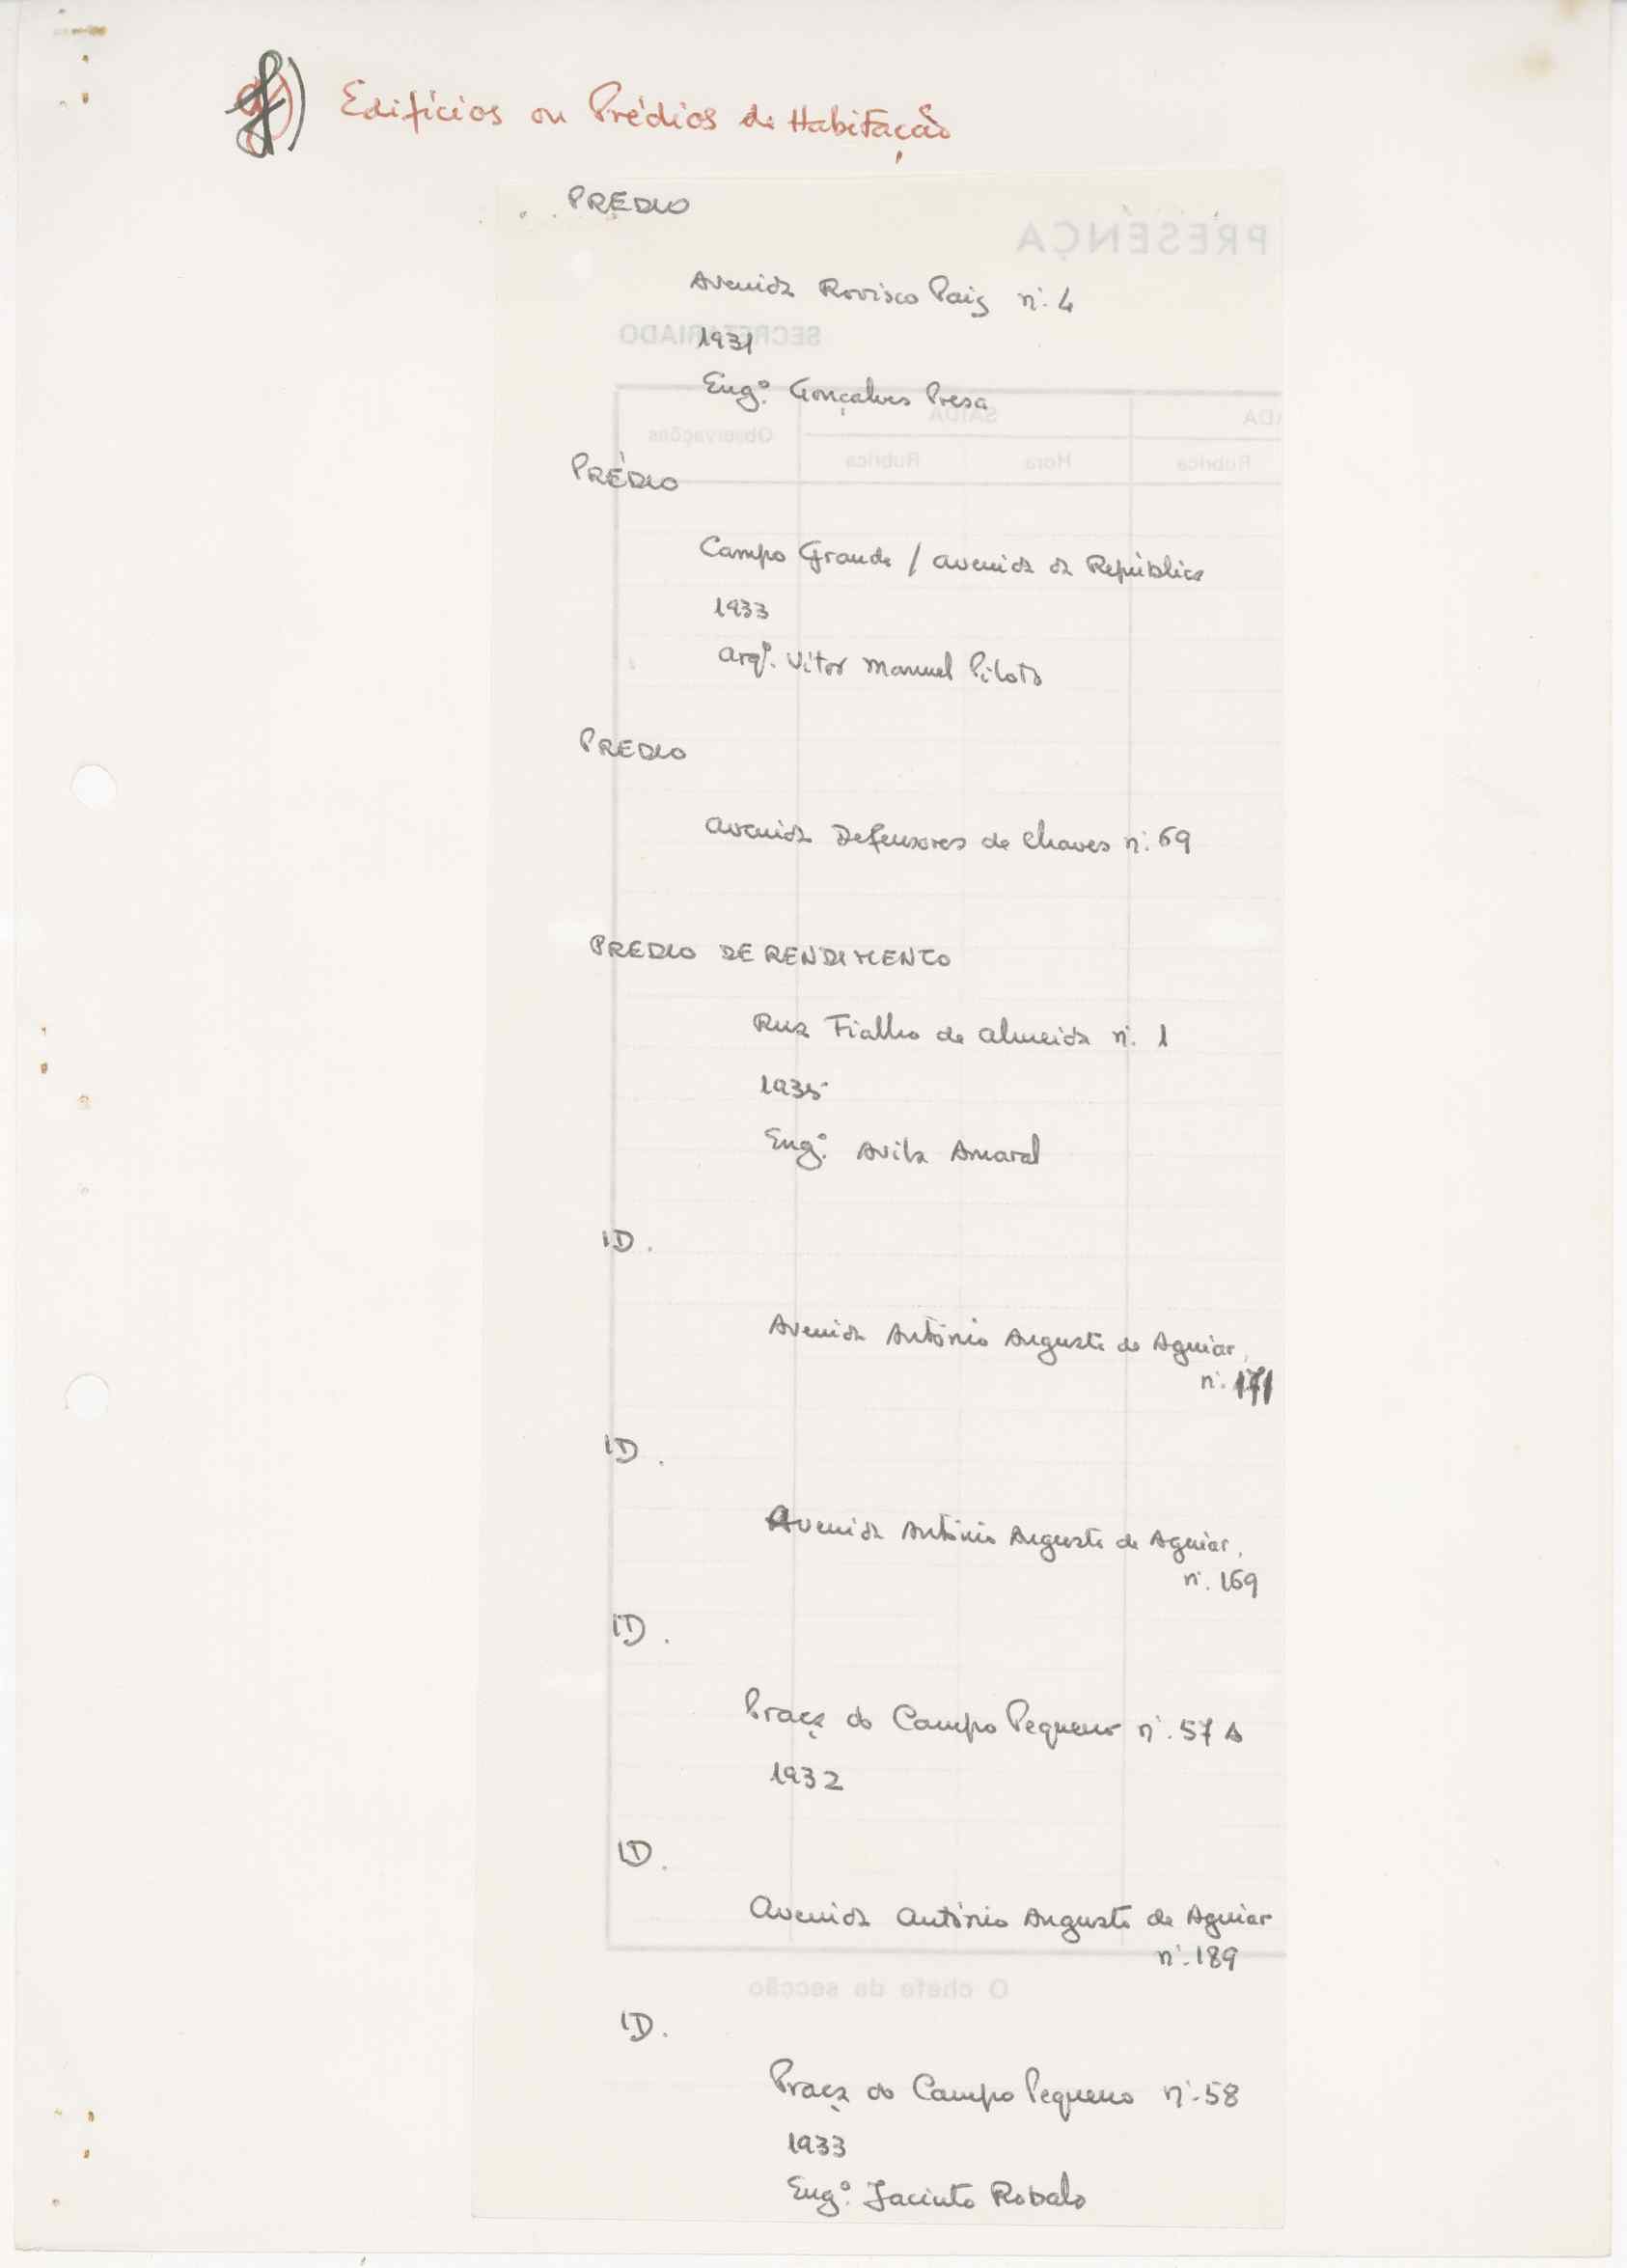 f) Edifícios ou Prédios de Habitação
PREDIO
Avenida Rovisco Pais nº. 4
1931
Engº. Gonçalves Presa
PRÉDIO
Campo Grande / avenida da República
1933
arqº. Vitor Manuel Piloto
PREDIO
avenida Defensores de Chaves nº. 69
PREDIO DE RENDIMENTO
Rua Fialho de almeida nº. 1
1935
Engº. Avila Amaral
ID.
Avenida António Augusto de Aguiar,
nº. 171
ID.
Avenida António Augusto de Aguiar,
nº. 169
ID.
Praça do Campo Pequeno nº. 57 A
1932
ID.
Avenida António Augusto de Aguiar
nº. 189
ID.
Praça do Campo Pequeno nº. 58
1933
Engº. Jacinto Robalo
PRESENÇA
SECRETARIADO
ADA
SAÍDA
Observações
Rubrica
Hora
Rubrica
O chefe da secção